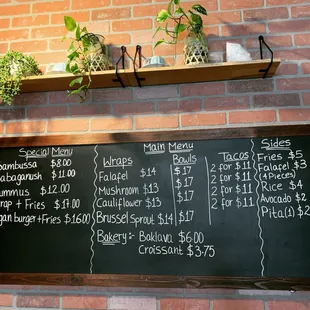 Special Menu
$8.00
$11.00
$12.00
+ Fries $17.00
burger+Fries $16.00
Main Menu
Wraps Bowls Tacos
Falafel $14 $17 2 for $11
Mushroom $13 $17 2 for $11
Cauliflower $13 $17 2 for $11
Brussel Sprout $14 $17 2 for $11
Bakery:- Baklava $6.00
Croissant $3.75
Sides
Fries $5
Falafel $3
(4 Pieces)
Rice $4
Avocado $2
Pita(1) $2